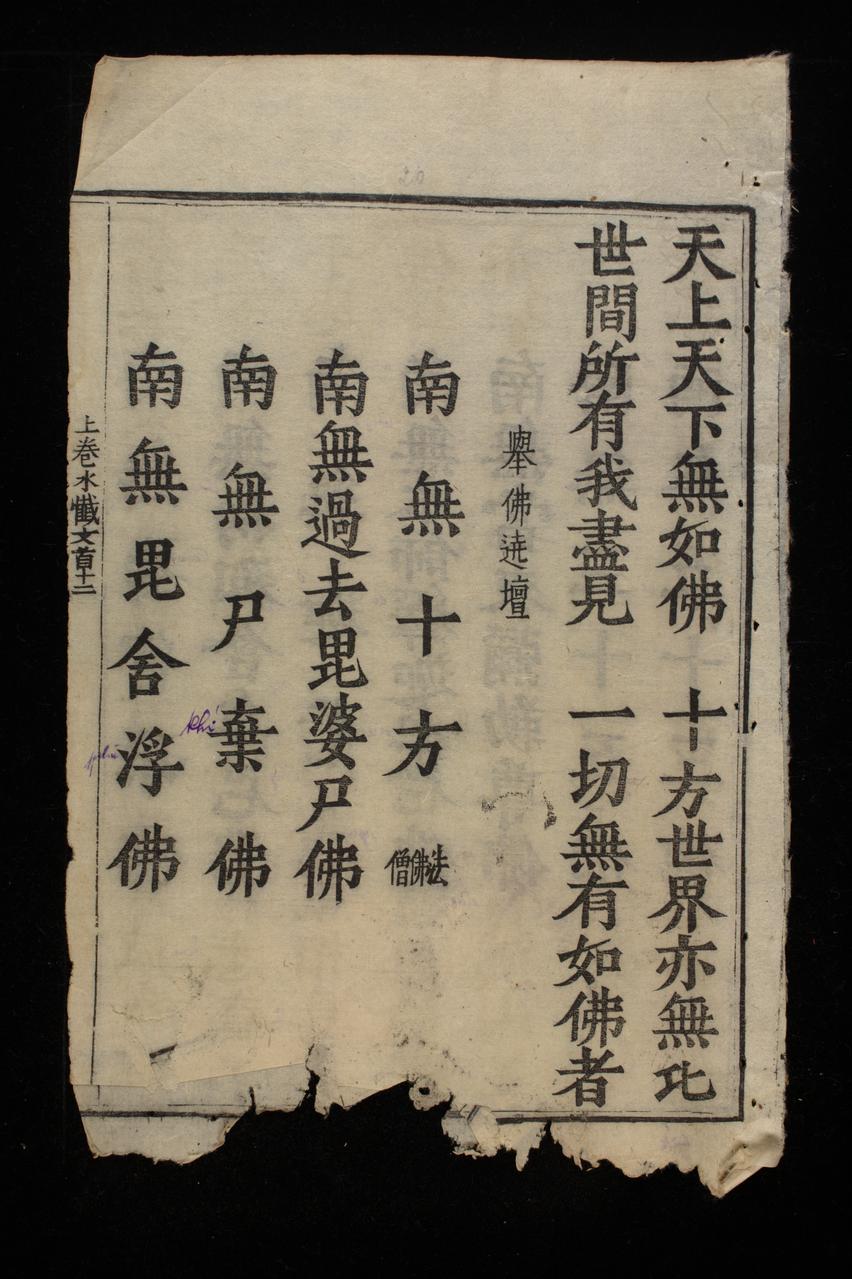 天上天下無如佛　十方世界亦無比
世間所有我盡見　一切無有如佛者
舉佛遶壇
南無十方法佛僧
南無過去毘婆尸佛
南無尸棄佛
khí
南無毘舍浮佛
上卷水懺文首十二